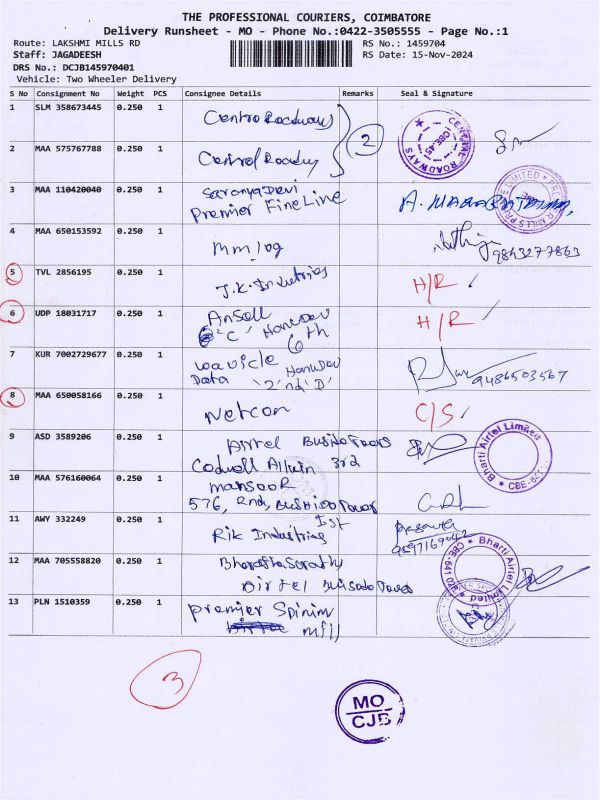 THE PROFESSIONAL COURIERS, COIMBATORE
Delivery Runsheet - MO - Phone No.:0422-3505555 - Page No.:1
Route: LAKSHMI MILLS RD
RS No.: 1459704
Staff: JAGADEESH
RS Date: 15-Nov-2024
DRS No.: DCJB145970401
Vehicle: Two Wheeler Delivery
S No Consignment No Weight PCS Consignee Details Remarks Seal & Signature
1 SLM 358673445 0.250 1 Centro Roadways
2
CENTRAL ROADWAYS CBE-45
2 MAA 575767788 0.250 1 Central Roadway
3 MAA 110420040 0.250 1 Saranya Devi
Premier Fine Line
PREMIER MILLS PRIVATE LIMITED
4 MAA 650153592 0.250 1 mm log
9843277863
5 TVL 2856195 0.250 1 J.K. Industries H/R
6 UDP 18031717 0.250 1 Ansell H/R
"C" Hanudev
6th
7 KUR 7002729677 0.250 1 wavicle Hanudev
Data '2'nd 'D'
9486503567
8 MAA 650058166 0.250 1 Netcon C/S
9 ASD 3589206 0.250 1 Airtel
Cadwell 3rd
Bharti Airtel Limited
10 MAA 576160064 0.250 1 mansoor
576, 2nd,
11 AWY 332249 0.250 1 Ist
Rik Industries
12 MAA 705558820 0.250 1 Bharathasarathy
Airtel
Bharti Airtel Limited
13 PLN 1510359 0.250 1 premier Spinim
mill
3
MO
CJB